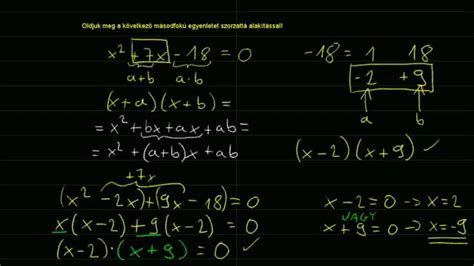 Oldjuk meg a következő másodfokú egyenletet szorzattá alakítással!
x² +7x -18 = 0
a+b a·b
(x+a)(x+b) =
= x² + bx + ax + ab =
= x² + (a+b)x + ab
+7x
(x² - 2x) + (9x - 18) = 0
x(x-2) + 9(x-2) = 0
(x-2)·(x+9) = 0 ✓
-18 = 1 18
-2 +9
a b
(x-2)(x+9) ✓
x-2=0 → x=2
VAGY
x+9=0 → x=-9